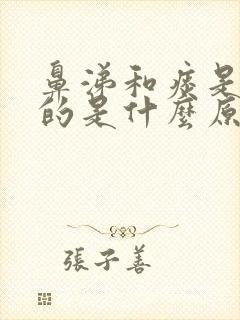 鼻涕和痰是
的是什麼原
張子善